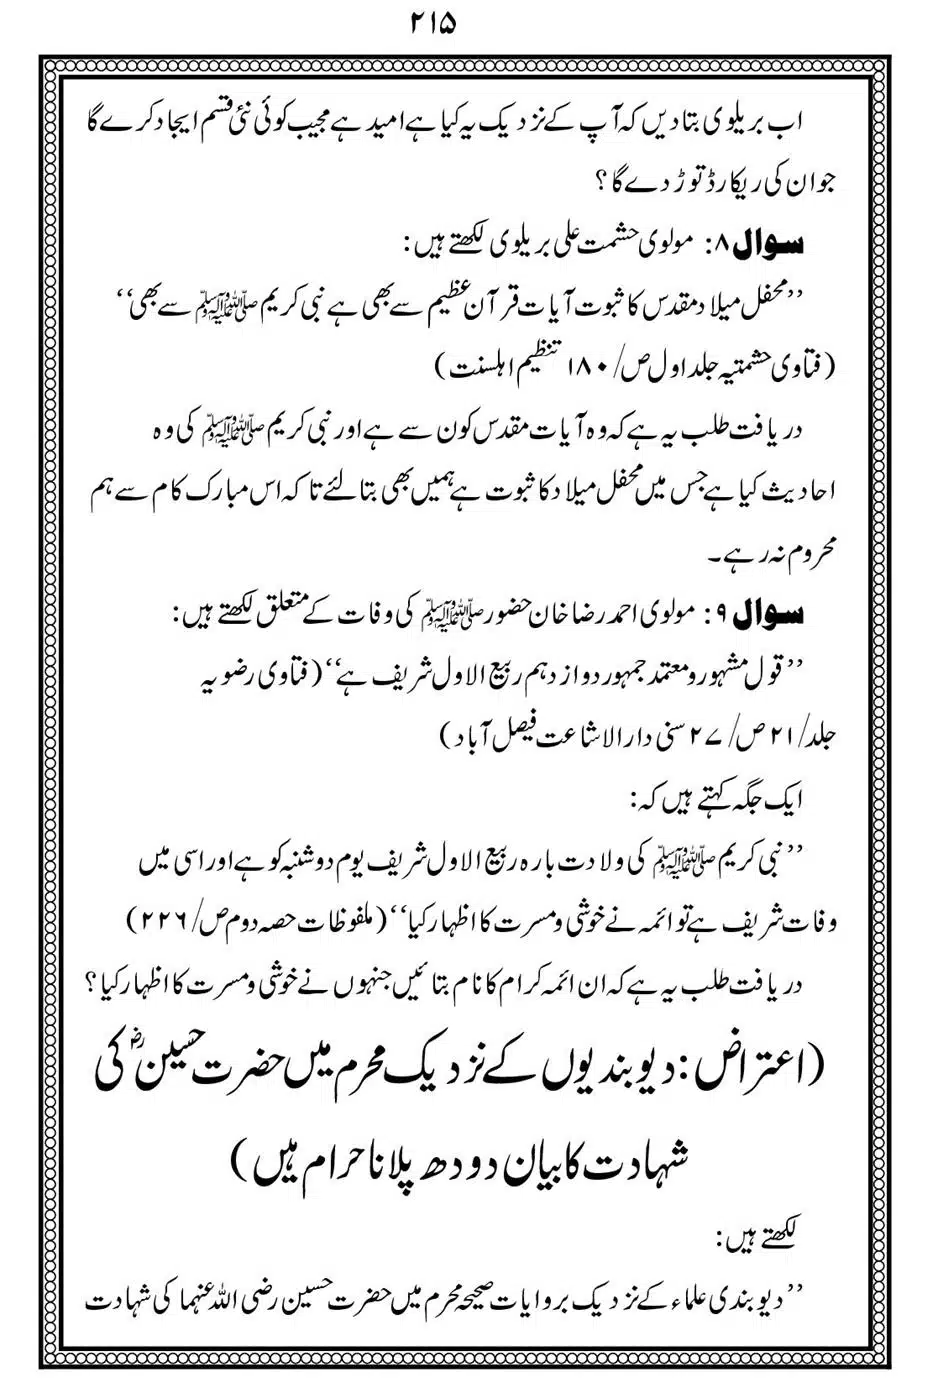 ۲۱۵
اب بریلوی بتادیں کہ آپ کے نزدیک یہ کیا ہے امید ہے مجیب کوئی نئی قسم ایجاد کرے گا
جوان کی ریکارڈ توڑ دے گا ؟
سوال ۸: مولوی حشمت علی بریلوی لکھتے ہیں:
’’محفل میلاد مقدس کا ثبوت آیات قرآن عظیم سے بھی ہے نبی کریم ﷺ سے بھی‘‘
(فتاوی حشمتیہ جلد اول ص/۱۸۰ تنظیم اہلسنت)
دریافت طلب یہ ہے کہ وہ آیات مقدس کون سے ہے اور نبی کریم ﷺ کی وہ
احادیث کیا ہے جس میں محفل میلاد کا ثبوت ہے ہمیں بھی بتالئے تاکہ اس مبارک کام سے ہم
محروم نہ رہے۔
سوال ۹: مولوی احمد رضا خان حضور ﷺ کی وفات کے متعلق لکھتے ہیں:
’’قول مشہور و معتمد جمہور دوازدہم ربیع الاول شریف ہے‘‘(فتاوی رضویہ
جلد/۲۱ ص/۲۷ سنی دارالاشاعت فیصل آباد)
ایک جگہ کہتے ہیں کہ:
’’نبی کریم ﷺ کی ولادت بارہ ربیع الاول شریف یوم دوشنبہ کو ہے اور اسی میں
وفات شریف ہے تو ائمہ نے خوشی و مسرت کا اظہار کیا‘‘(ملفوظات حصہ دوم ص/۲۲۶)
دریافت طلب یہ ہے کہ ان ائمہ کرام کا نام بتائیں جنہوں نے خوشی و مسرت کا اظہار کیا؟
(اعتراض: دیوبندیوں کے نزدیک محرم میں حضرت حسینؓ کی
شہادت کا بیان دودھ پلانا حرام ہیں)
لکھتے ہیں:
’’دیوبندی علماء کے نزدیک بروایات صحیحہ محرم میں حضرت حسین رضی اللہ عنہما کی شہادت